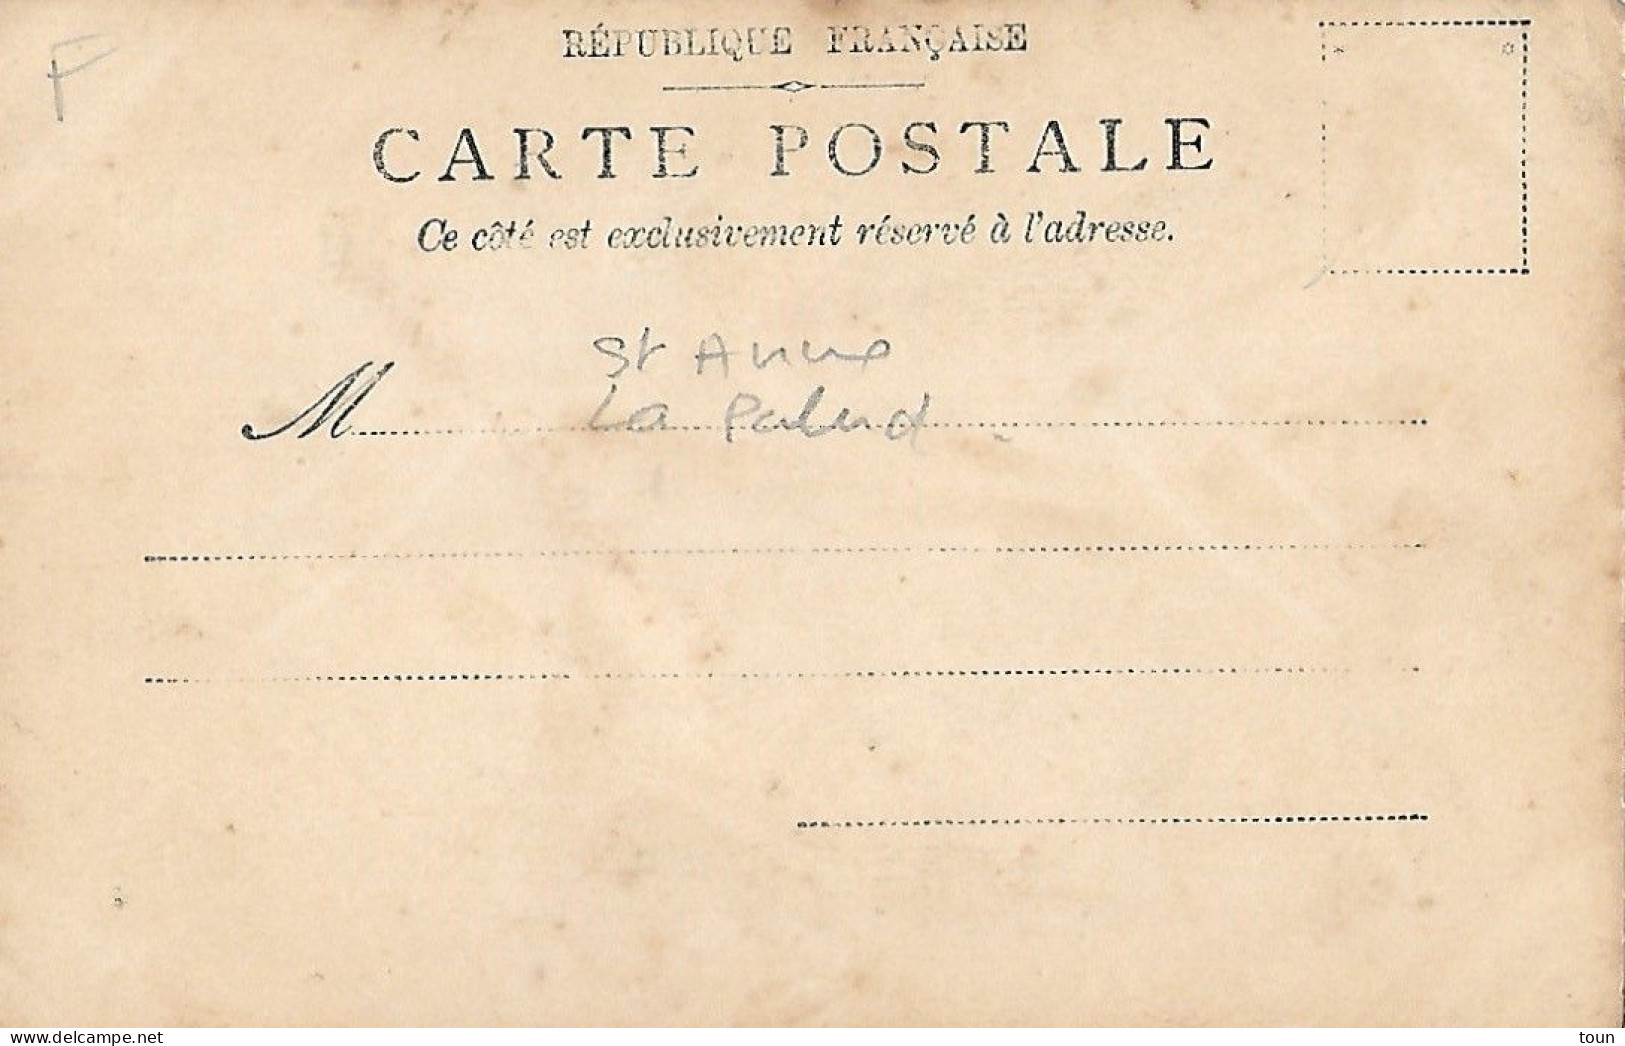 RÉPUBLIQUE FRANÇAISE
F
CARTE POSTALE
Ce côté est exclusivement réservé à l'adresse.
St Anne
M La Palud
delcampe.net
toun